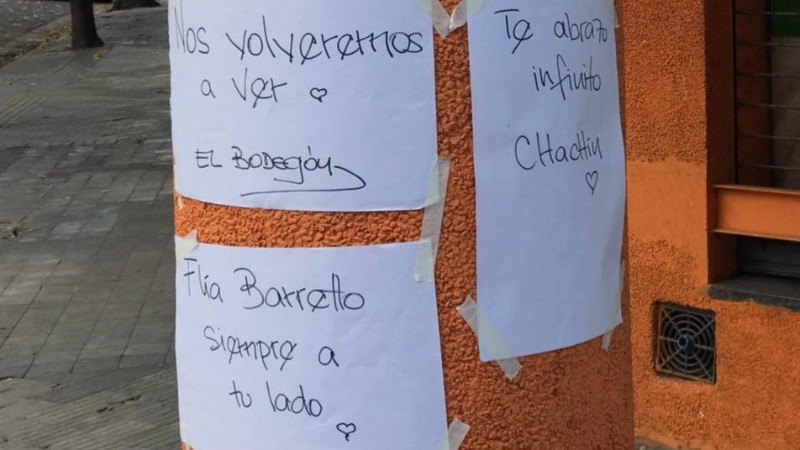 Nos volveremos
a ver
EL BODEGÓN
Te abrazo
infinito
CHachin
Flia Barretto
siempre a
tu lado